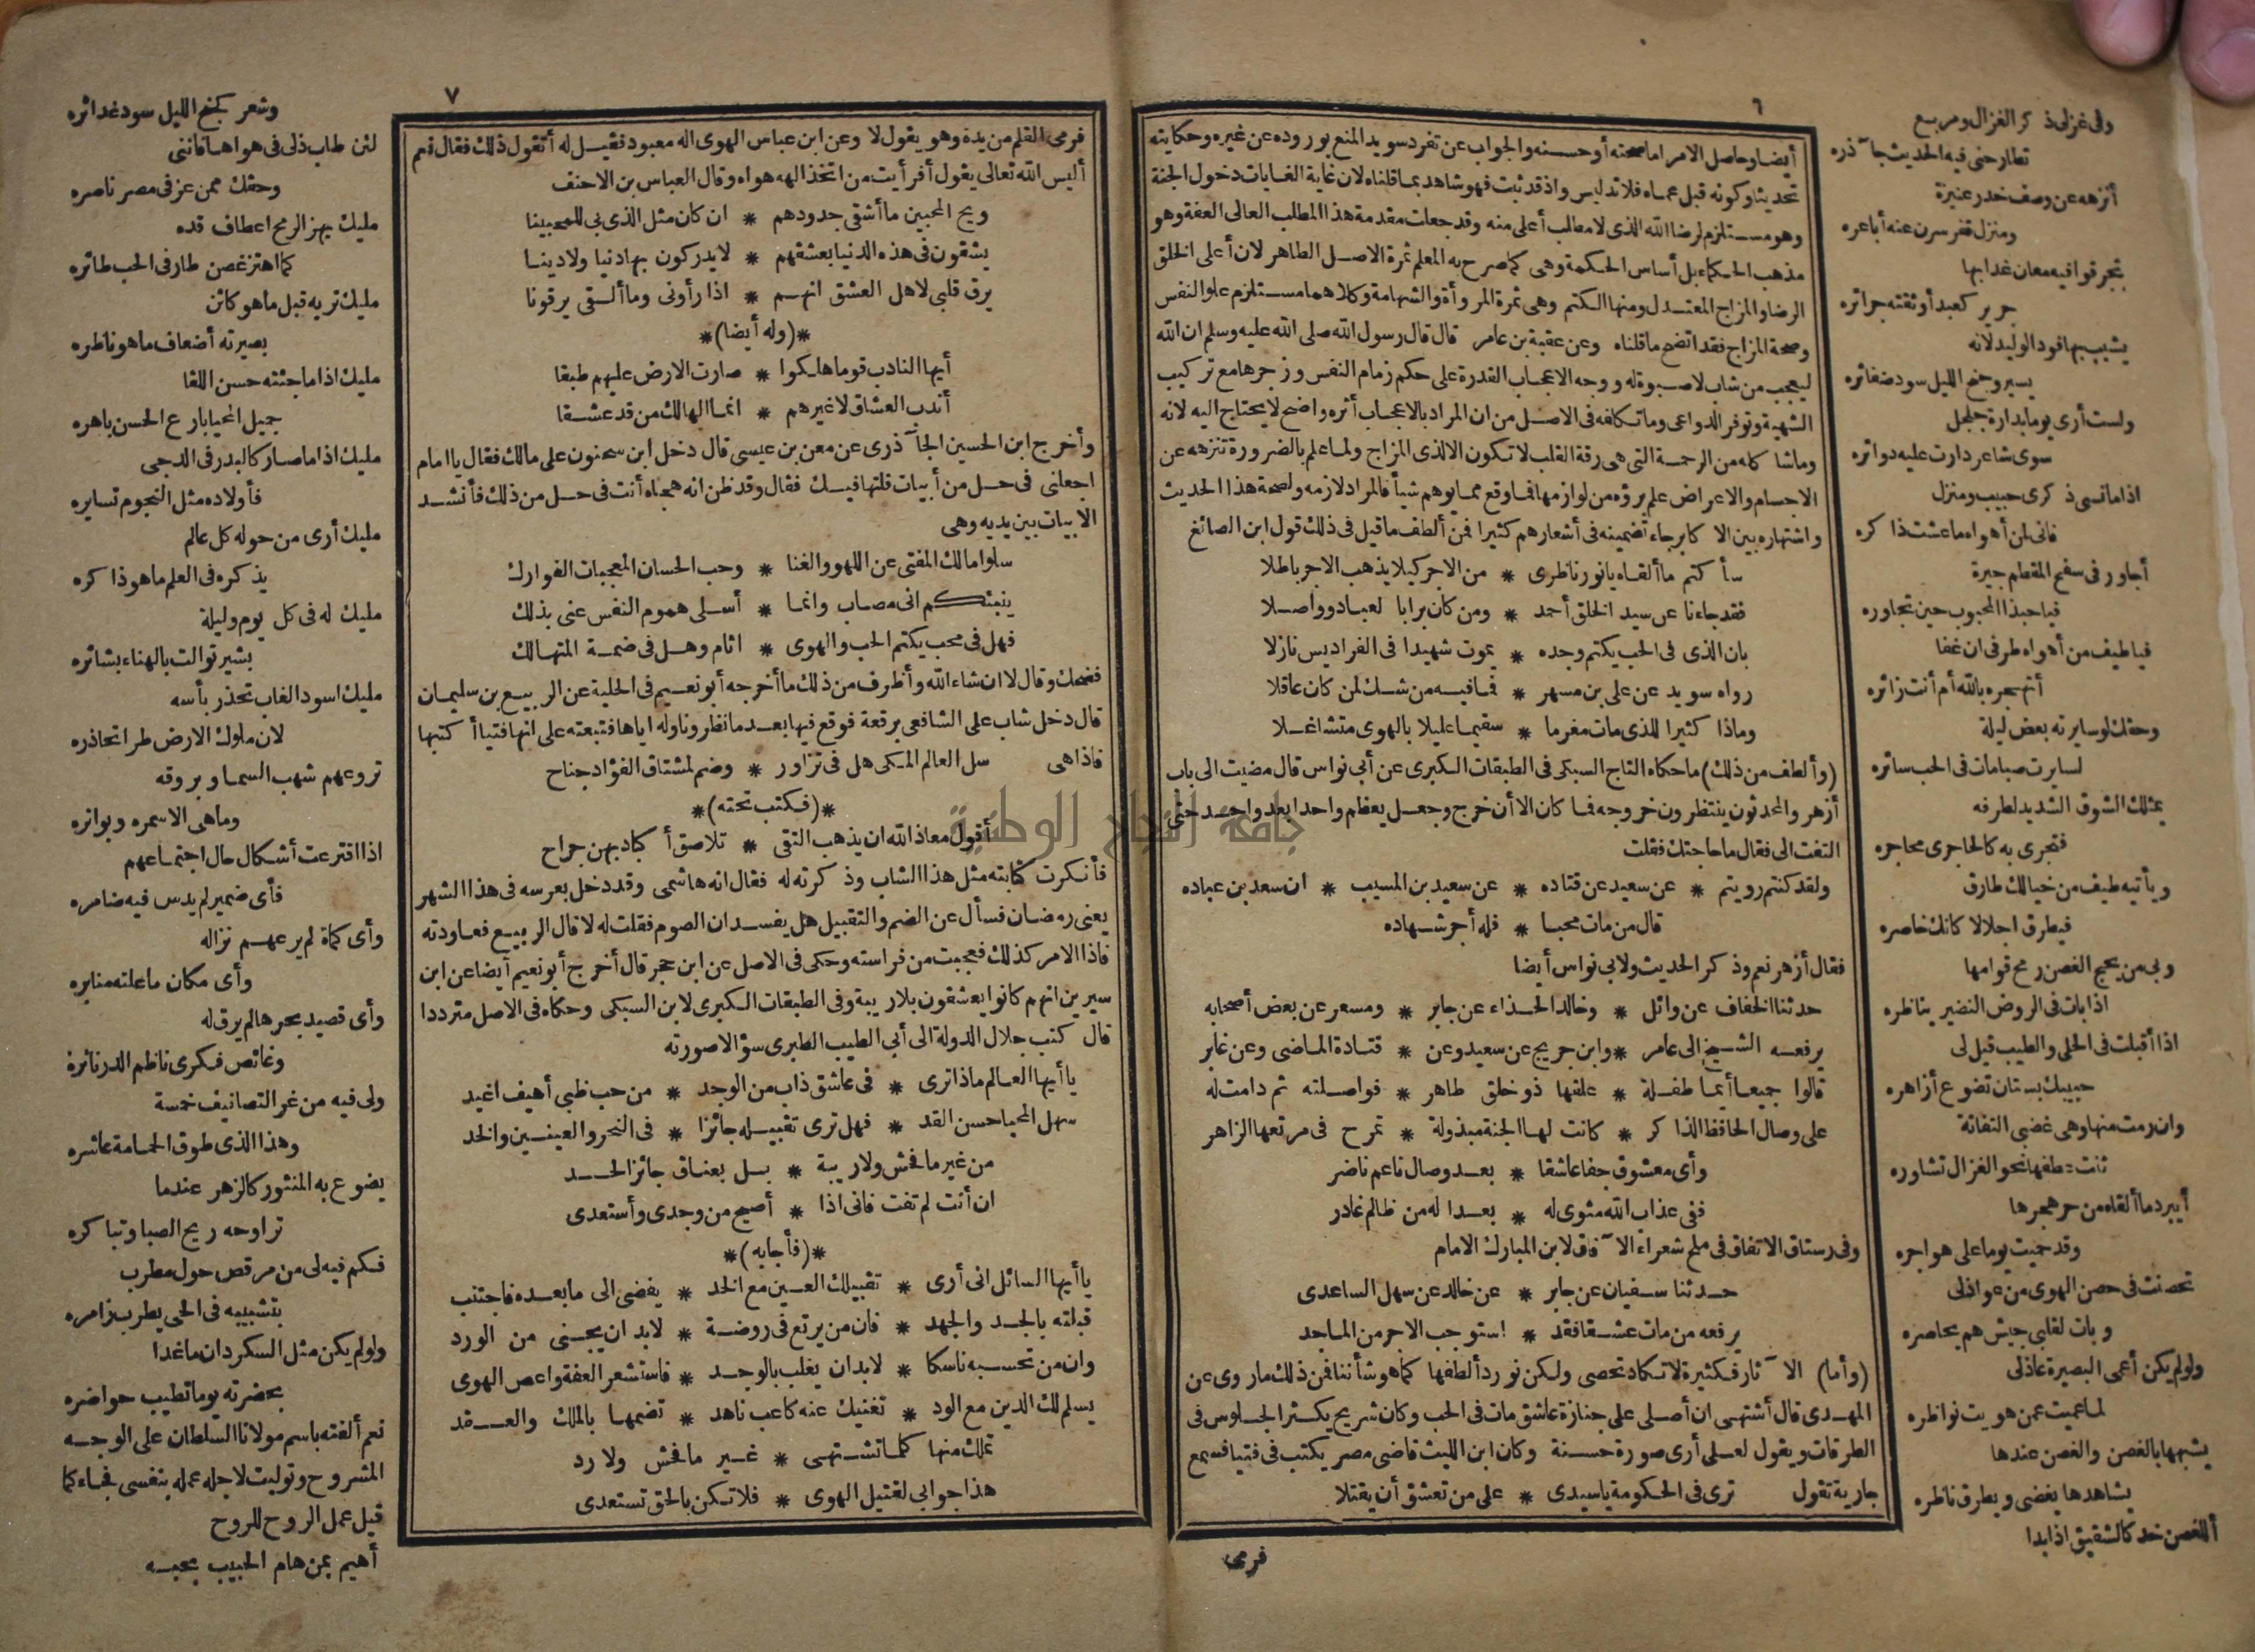 ٦
أيضا وحاصل الامر اما صحته أو حسنه والجواب عن تفرد سويد المنع بوروده عن غيره وحكايته
تحديثا وكونه قبل عماه فلا تدليس واذ قد ثبت فهو شاهد بما قلناه لان غاية الغايات دخول الجنة
وهو مستلزم لرضا الله الذى لا مطلب أعلى منه وقد جعلت مقدمة هذا المطلب العالى العفة وهو
مذهب الحكماء بل أساس الحكمة وهى كما صرح به المعلم ثمرة الاصل الطاهر لان أعلى الخلق
الرضا والمزاج المعتدل ومنها الكتم وهى ثمرة المروأة والشهامة وكلاهما مستلزم علو النفس
وصحة المزاج فقد اتضح ما قلناه وعن عقبة بن عامر قال قال رسول الله صلى الله عليه وسلم ان الله
ليعجب من شاب لا صبوة له ووجه الاعجاب القدرة على حكم زمام النفس وزجرها مع تركيب
الشهية وتوفر الدواعى وما تكافه فى الاصل من ان المراد بالاعجاب أثره واضح لا يحتاج اليه لانه
وما شاكله من الرحمة التى هى رقة القلب لا تكون الا لذى المزاج ولما علم بالضرورة تنزهه عن
الاجسام والاعراض علم برؤه من لوازمها فما وقع مما يوهم شيأ فالمراد لازمه ولصحة هذا الحديث
واشتهاره بين الاكابر جاء تضمينه فى أشعارهم كثيرا فمن ألطف ما قيل فى ذلك قول ابن الصائغ
سأكتم ما ألقاه يا نور ناظرى * من الاجر كيلا يذهب الاجر باطلا
فقد جاءنا عن سيد الخلق أحمد * ومن كان برابا لعباد وواصلا
بان الذى فى الحب يكتم وجده * يموت شهيدا فى الفراديس نازلا
رواه سويد عن على بن مسهر * فما فيه من شك لمن كان عاقلا
وماذا كثيرا للذى مات مغرما * سقيما عليلا بالهوى متشاغلا
(وألطف من ذلك) ما حكاه التاج السبكى فى الطبقات الكبرى عن أبى نواس قال مضيت الى باب
أزهر والمحدثون ينتظرون خروجه فما كان الا أن خرج وجعل يعظم واحدا بعد واحد حتى
التفت الى فقال ما حاجتك فقلت
ولقد كنتم رويتم * عن سعيد عن قتاده * عن سعيد بن المسيب * ان سعد بن عباده
قال من مات محبا * فله أجر شهاده
فقال أزهر نعم وذكر الحديث ولابى نواس أيضا
حدثنا الخفاف عن وائل * وخالد الحذاء عن جابر * ومسعر عن بعض أصحابه
يرفعه الشيخ الى عامر * وابن جريج عن سعيد وعن * قتادة الماضى وعن غابر
قالوا جميعا أيما طفلة * علقها ذو خلق طاهر * فواصلته ثم دامت له
على وصال الحافظ الذاكر * كانت لها الجنة مبذولة * تمرح فى مرتعها الزاهر
وأى معشوق جفا عاشقا * بعد وصال ناعم ناضر
ففى عذاب الله مثوى له * بعدا له من ظالم غادر
وفى رستاق الاتفاق فى ملح شعراء الآفاق لابن المبارك الامام
حدثنا سفيان عن جابر * عن خالد عن سهل الساعدى
يرفعه من مات عشقا فقد * استوجب الاجر من الماجد
(وأما) الآثار فكثيرة لا تكاد تحصى ولكن نورد ألطفها كما هو شأننا فمن ذلك ماروى عن
المهدى قال أشتهى ان أصلى على جنازة عاشق مات فى الحب وكان شريح يكثر الجلوس فى
الطرقات ويقول لعلى أرى صورة حسنة وكان ابن الليث قاضى مصر يكتب فى فتيا فسمع
جارية تقول ترى فى الحكومة ياسيدى * على من تعشق أن يقتلا
فرمى
وفى غزلى ذكر الغزال ومربع
تطارحنى فيه الحديث جآذره
أنزهه عن وصف خدر عنيزة
ومنزل قفر سرن عنه أباعره
تجر قوافيه معان غدا بها
جرير كعبد أوثقته جرائره
يشيب بها فود الوليد لانه
يسير وجنح الليل سود ضفائره
ولست أرى يوما بدارة جلجل
سوى شاعر دارت عليه دوائره
اذا ما نسى ذكرى حبيب ومنزل
فانى لمن أهواه ما عشت ذاكره
أجاور فى سفح المقطم جيرة
فيا حبذا المحبوب حين تجاوره
فيا طيف من أهواه طرفى ان غفا
أتهجره بالله أم أنت زائره
وحقك لو سايرته بعض ليلة
لسايرت صبامات فى الحب سائره
يمثلك الشوق الشديد لطرفه
فتجرى به كالحاجرى محاجره
ويأتيه طيف من خيالك طارق
فيطرق اجلالا كانك خاصره
وبى من يحج الغصن رمح قوامها
اذا بات فى الروض النضير يناظره
اذا أقبلت فى الحلى والطيب قيل لى
حبيبك بستان تضوع أزاهره
وان رمت منها وهى غضبى التفاتة
ثنت عطفها نحو الغزال تشاوره
أيبرد ما ألقاه من حر هجرها
وقد حميت يوما على هواجره
تحصنت فى حصن الهوى من عواذلى
وبات لقلبى جيش هم يحاصره
ولو لم يكن أعمى البصيرة عاذلى
لما عميت عمن هويت نواظره
يشبهها بالغصن والغصن عندها
يشاهدها يغضى ويطرق ناظره
أللغصن خد كالشقيق اذا بدا
٧
فرمى القلم من يده وهو يقول لا وعن ابن عباس الهوى اله معبود فقيل له أتقول ذلك فقال نعم
أليس الله تعالى يقول أفرأيت من اتخذ الهه هواه وقال العباس بن الاحنف
ويح المحبين ما أشقى جدودهم * ان كان مثل الذى بى للمحبينا
يشقون فى هذه الدنيا بعشقهم * لا يدركون بها دنيا ولا دينا
يرق قلبى لاهل العشق انهم * اذا رأونى وما ألقى يرقونا
*(وله أيضا)*
أيها النادب قوما هلكوا * صارت الارض عليهم طبقا
أندب العشاق لا غيرهم * انما الهالك من قد عشقا
وأخرج ابن الحسين الجآذرى عن معن بن عيسى قال دخل ابن سحنون على مالك فقال يا امام
اجعلنى فى حل من أبيات قلتها فيك فقال وقد ظن انه هجاه أنت فى حل من ذلك فأنشد
الابيات بين يديه وهى
سلوا مالك المفتى عن اللهو والغنا * وحب الحسان المعجبات الفوارك
ينبئكم انى مصاب وانما * أسلى هموم النفس عنى بذلك
فهل فى محب يكتم الحب والهوى * اثام وهل فى ضمة المتهالك
فضحك وقال لا ان شاء الله وأظرف من ذلك ما أخرجه أبو نعيم فى الحلية عن الربيع بن سليمان
قال دخل شاب على الشافعى برقعة فوقع فيها بعد ما نظر وناوله اياها فتبعته على انها فتيا أكتبها
فاذا هى سل العالم المكى هل فى تزاور * وضم لمشتاق الفؤاد جناح
*(فكتب تحته)*
أقول معاذ الله ان يذهب التقى * تلاصق أكباد بهن جراح
فأنكرت كتابته مثل هذا الشاب وذكرته له فقال انه هاشمى وقد دخل بعرسه فى هذا الشهر
يعنى رمضان فسأل عن الضم والتقبيل هل يفسدان الصوم فقلت له لا قال الربيع فعاودته
فاذا الامر كذلك فعجبت من فراسته وحكى فى الاصل عن ابن حجر قال أخرج أبو نعيم أيضا عن ابن
سيرين انهم كانوا يعشقون بلا ريبة وفى الطبقات الكبرى لابن السبكى وحكاه فى الاصل مترددا
قال كتب جلال الدولة الى أبى الطيب الطبرى سؤالا صورته
يا أيها العالم ماذا ترى * فى عاشق ذاب من الوجد * من حب ظبى أهيف اغيد
سهل المحيا حسن القد * فهل ترى تقبيله جائزا * فى النحر والعينين والخد
من غير ما فحش ولا ريبة * بل بعناق جائز الحد
ان أنت لم تفت فانى اذا * أصيح من وجدى وأستعدى
*(فأجابه)*
يا أيها السائل انى أرى * تقبيلك العين مع الخد * يفضى الى ما بعده فاجتنب
قبلته بالجد والجهد * فان من يرتع فى روضة * لابد ان يجنى من الورد
وان من تحسبه ناسكا * لابد ان يغلب بالوجد * فاستشعر العفة واعص الهوى
يسلم لك الدين مع الود * تغنيك عنه كاعب ناهد * تضمها بالملك والعقد
تملك منها كلما تشتهى * غير ما فحش ولا رد
هذا جوابى لقتيل الهوى * فلا تكن بالحق تستعدى
وشعر كجنح الليل سود غدائره
لئن طاب ذلى فى هواها فاننى
وحقك ممن عز فى مصر ناصره
مليك يهز الرمح اعطاف قده
كما اهتز غصن طار فى الحب طائره
مليك تريه قبل ما هو كائن
بصيرته أضعاف ما هو ناظره
مليك اذا ما جئته حسن اللقا
جميل المحيا بارع الحسن باهره
مليك اذا ما صار كالبدر فى الدجى
فأولاده مثل النجوم تسايره
مليك أرى من حوله كل عالم
يذكره فى العلم ما هو ذاكره
مليك له فى كل يوم وليلة
بشير توالت بالهناء بشائره
مليك اسود الغاب تحذر بأسه
لان ملوك الارض طرا تحاذره
تروعهم شهب السما وبروقه
وما هى الا سمره وبواتره
اذا اقترعت أشكال حال اجتماعهم
فأى ضمير لم يدس فيه ضامره
وأى كماة لم يرعهم نزاله
وأى مكان ما علته منابره
وأى قصيد بحرها لم يرق له
وغائص فكرى ناظم الدر ناثره
ولى فيه من غر التصانيف خمسة
وهذا الذى طوق الحمامة عاشره
يضوع به المنثور كالزهر عندما
تراوحه ريح الصبا وتباكره
فكم فيه لى من مرقص حول مطرب
بتشبيبه فى الحى يطرب زامره
ولو لم يكن مثل السكردان ما غدا
بحضرته يوما تطيب حواضره
نعم ألفته باسم مولانا السلطان على الوجه
المشروح وتوليت لاجله عمله بنفسى فجاء كما
قيل عمل الروح للروح
أهيم بمن هام الحبيب بحبه
جامعة النجاح الوطنية